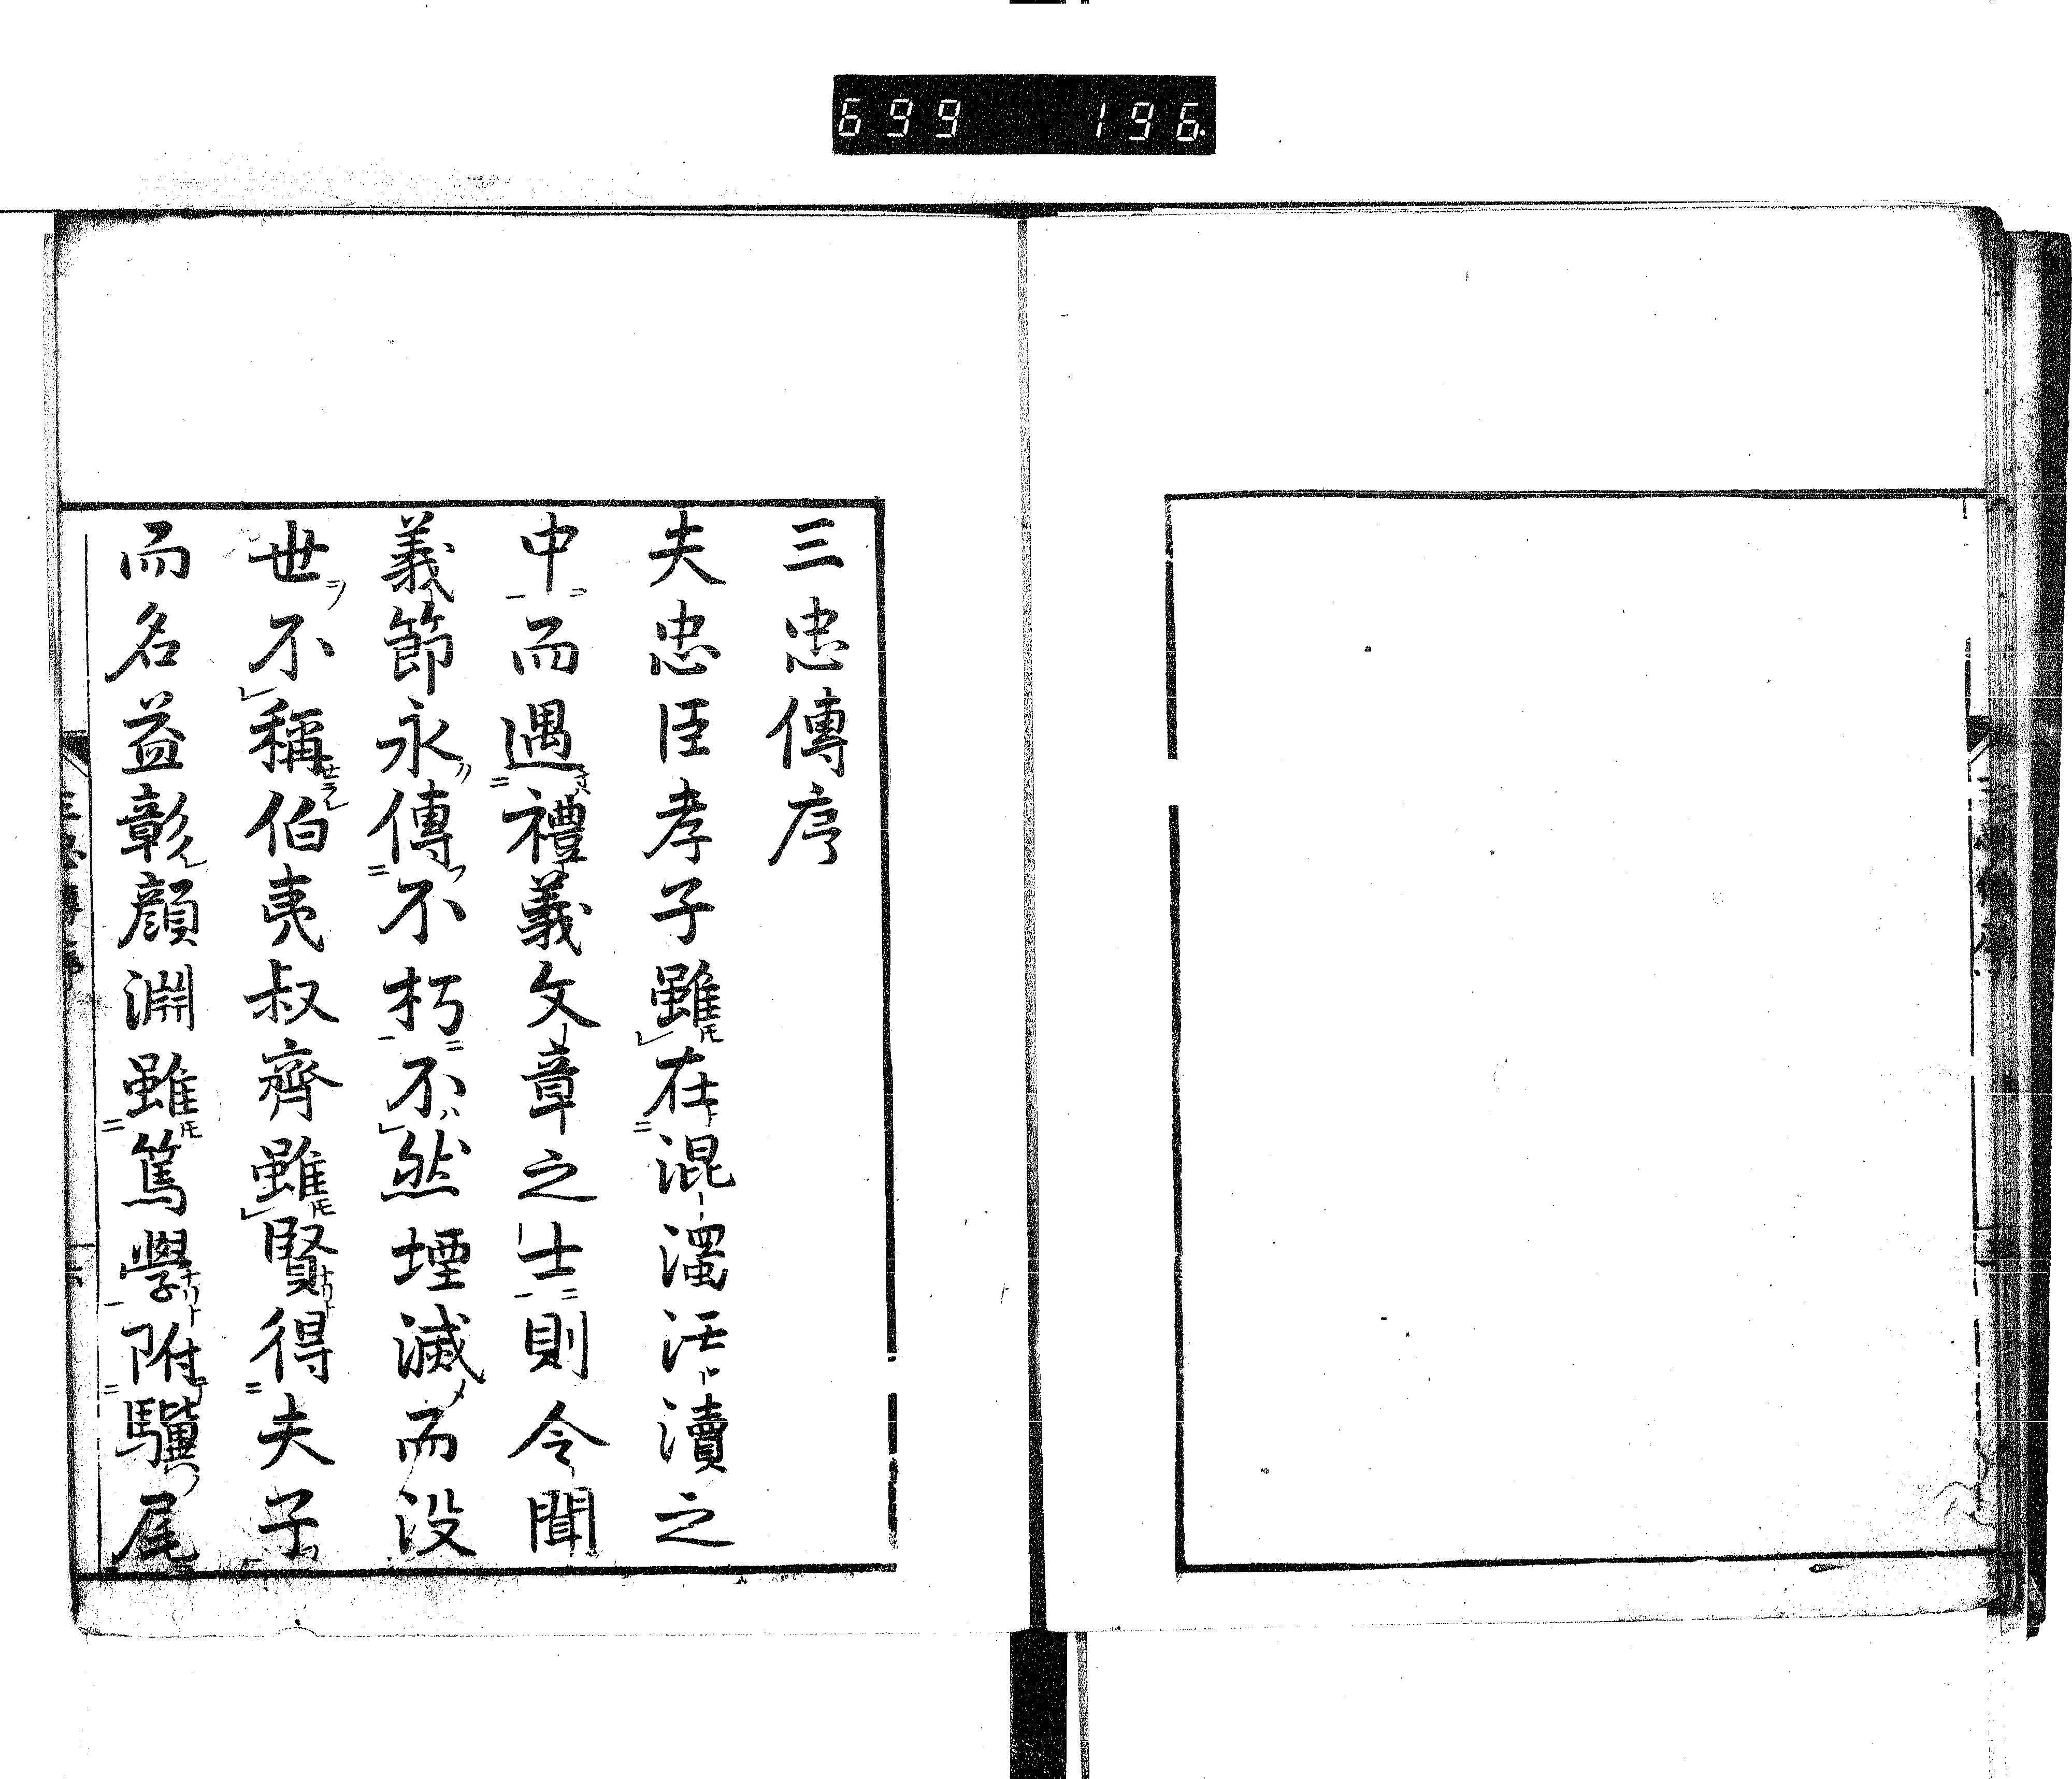 699 196
三忠傳序
夫忠臣孝子雖在混濁汚瀆之
中而遇禮義文章之士則令聞
義節永傳不朽不然堙滅而没
世不稱伯夷叔齊雖賢得夫子
而名益彰顔淵雖篤學附驥尾